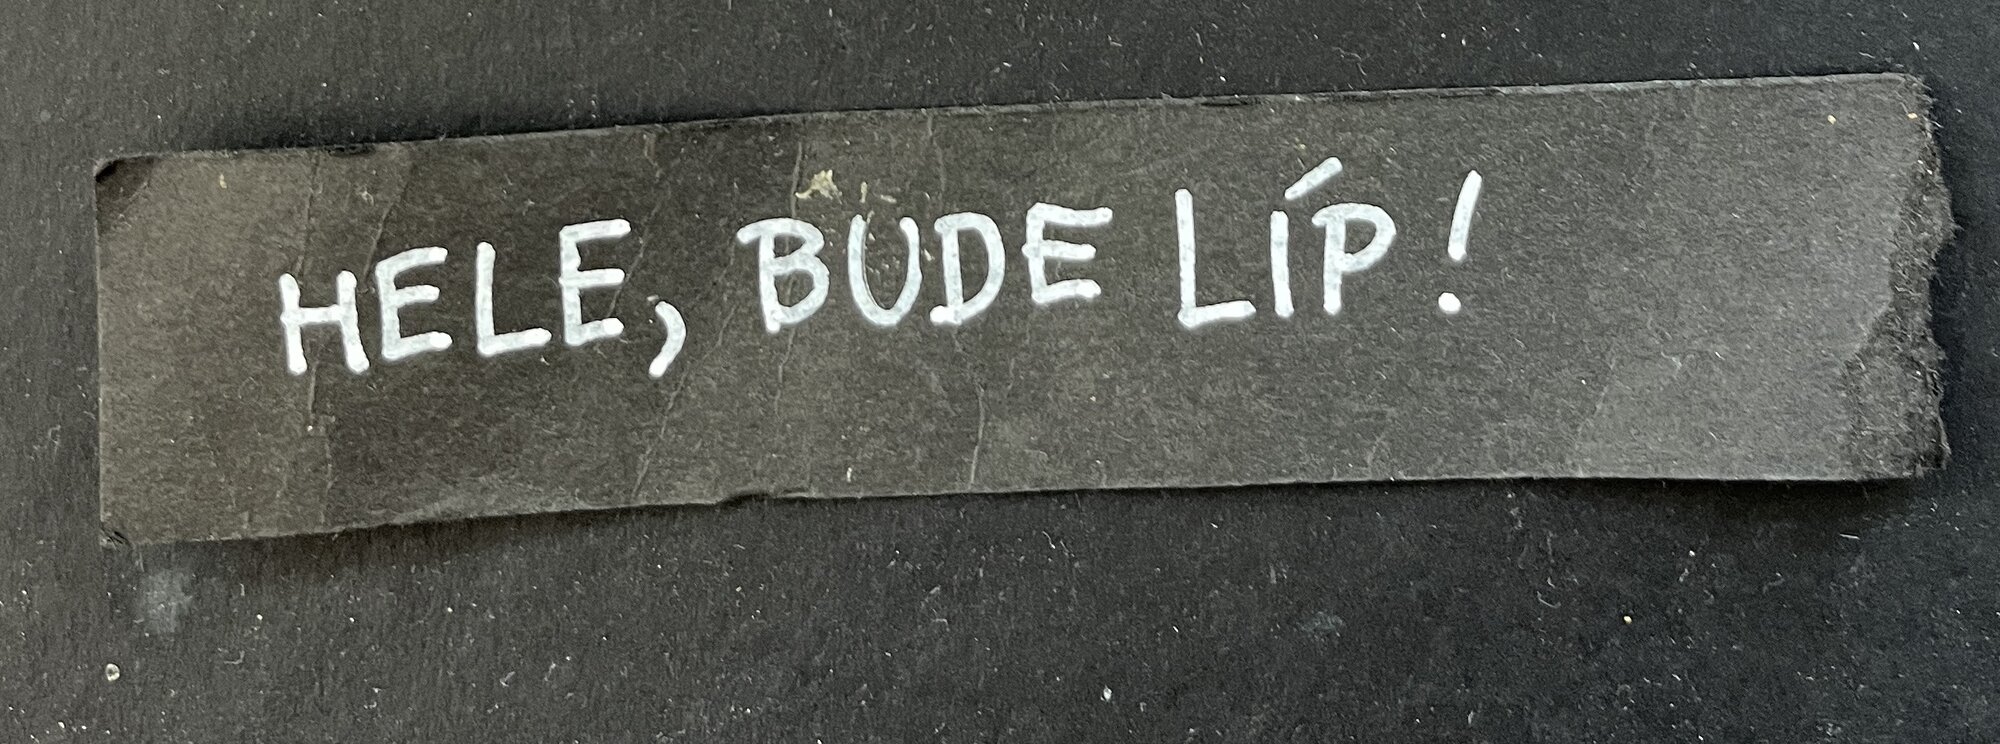 HELE, BUDE LÍP!